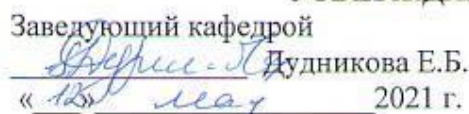 Заведующий кафедрой
Дудникова Е.Б.
« 12 » мая 2021 г.